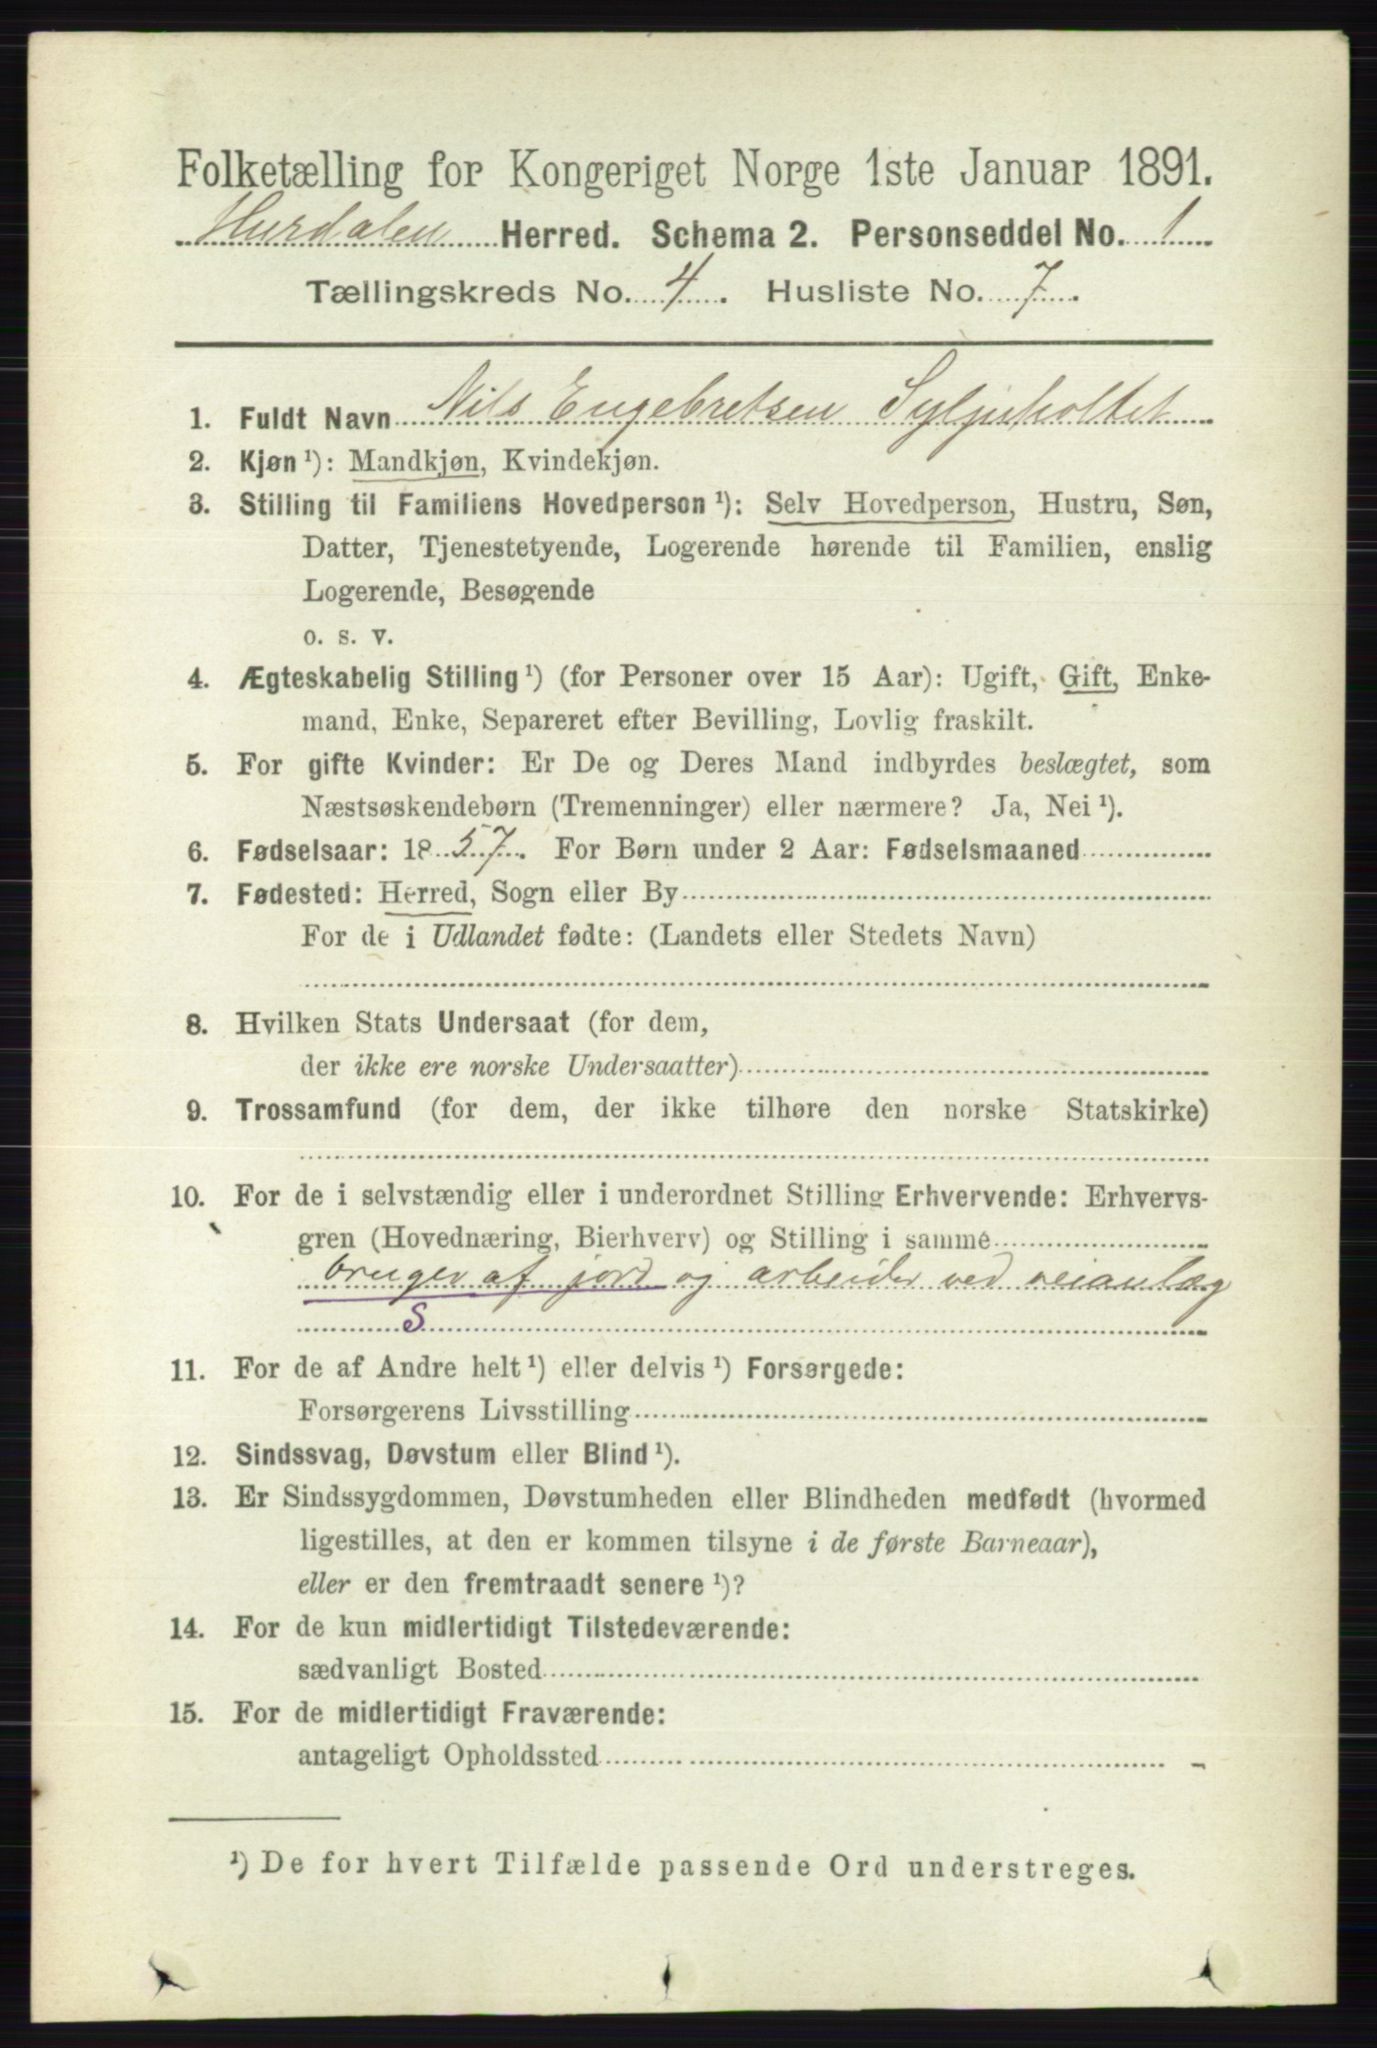 Folketælling for Kongeriget Norge 1ste Januar 1891.
Hurdalen Herred. Schema 2. Personseddel No. 1
Tællingskreds No. 4. Husliste No. 7.
1. Fuldt Navn Nils Engebretsen
2. Kjøn ¹): Mandkjøn, Kvindekjøn.
3. Stilling til Familiens Hovedperson ¹): Selv Hovedperson, Hustru, Søn,
Datter, Tjenestetyende, Logerende hørende til Familien, enslig
Logerende, Besøgende
o. s. v.
4. Ægteskabelig Stilling ¹) (for Personer over 15 Aar): Ugift, Gift, Enke-
mand, Enke, Separeret efter Bevilling, Lovlig fraskilt.
5. For gifte Kvinder: Er De og Deres Mand indbyrdes beslægtet, som
Næstsøskendebørn (Tremenninger) eller nærmere? Ja, Nei ¹).
6. Fødselsaar: 1857. For Børn under 2 Aar: Fødselsmaaned
7. Fødested: Herred, Sogn eller By
For de i Udlandet fødte: (Landets eller Stedets Navn)
8. Hvilken Stats Undersaat (for dem,
der ikke ere norske Undersaatter)
9. Trossamfund (for dem, der ikke tilhøre den norske Statskirke)
10. For de i selvstændig eller i underordnet Stilling Erhvervende: Erhvervs-
gren (Hovednæring, Bierhverv) og Stilling i samme
bruger af jord og arbeider ved veianlæg
S
11. For de af Andre helt ¹) eller delvis ¹) Forsørgede:
Forsørgerens Livsstilling
12. Sindssvag, Døvstum eller Blind ¹).
13. Er Sindssygdommen, Døvstumheden eller Blindheden medfødt (hvormed
ligestilles, at den er kommen tilsyne i de første Barneaar),
eller er den fremtraadt senere ¹)?
14. For de kun midlertidigt Tilstedeværende:
sædvanligt Bosted
15. For de midlertidigt Fraværende:
antageligt Opholdssted
¹) De for hvert Tilfælde passende Ord understreges.